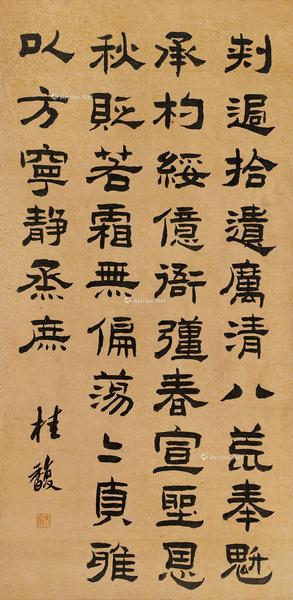 刺過拾遺厲清八荒奉魁
承杓綏億衙彊春宣聖恩
秋貶若霜無偏蕩〻貞雅
以方寧靜烝庶
桂馥
Artron.Net